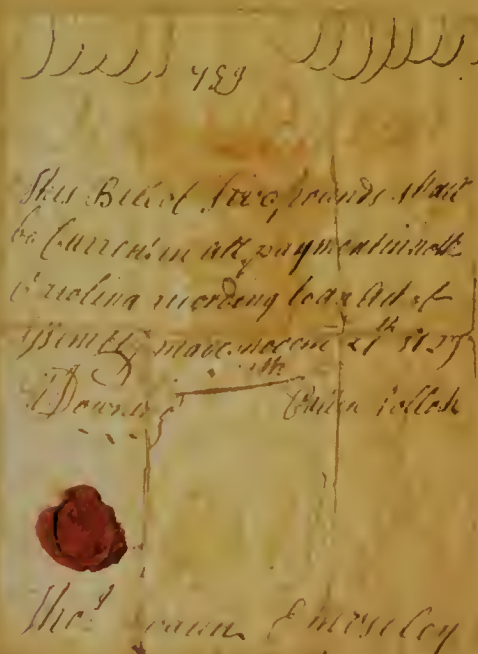 759
This Bill of five pounds shall
be Current in all payments in North
Carolina according to an Act of
Assembly made Novem 27th 1729
W Downing Cullen Pollok
Tho.s E Moseley